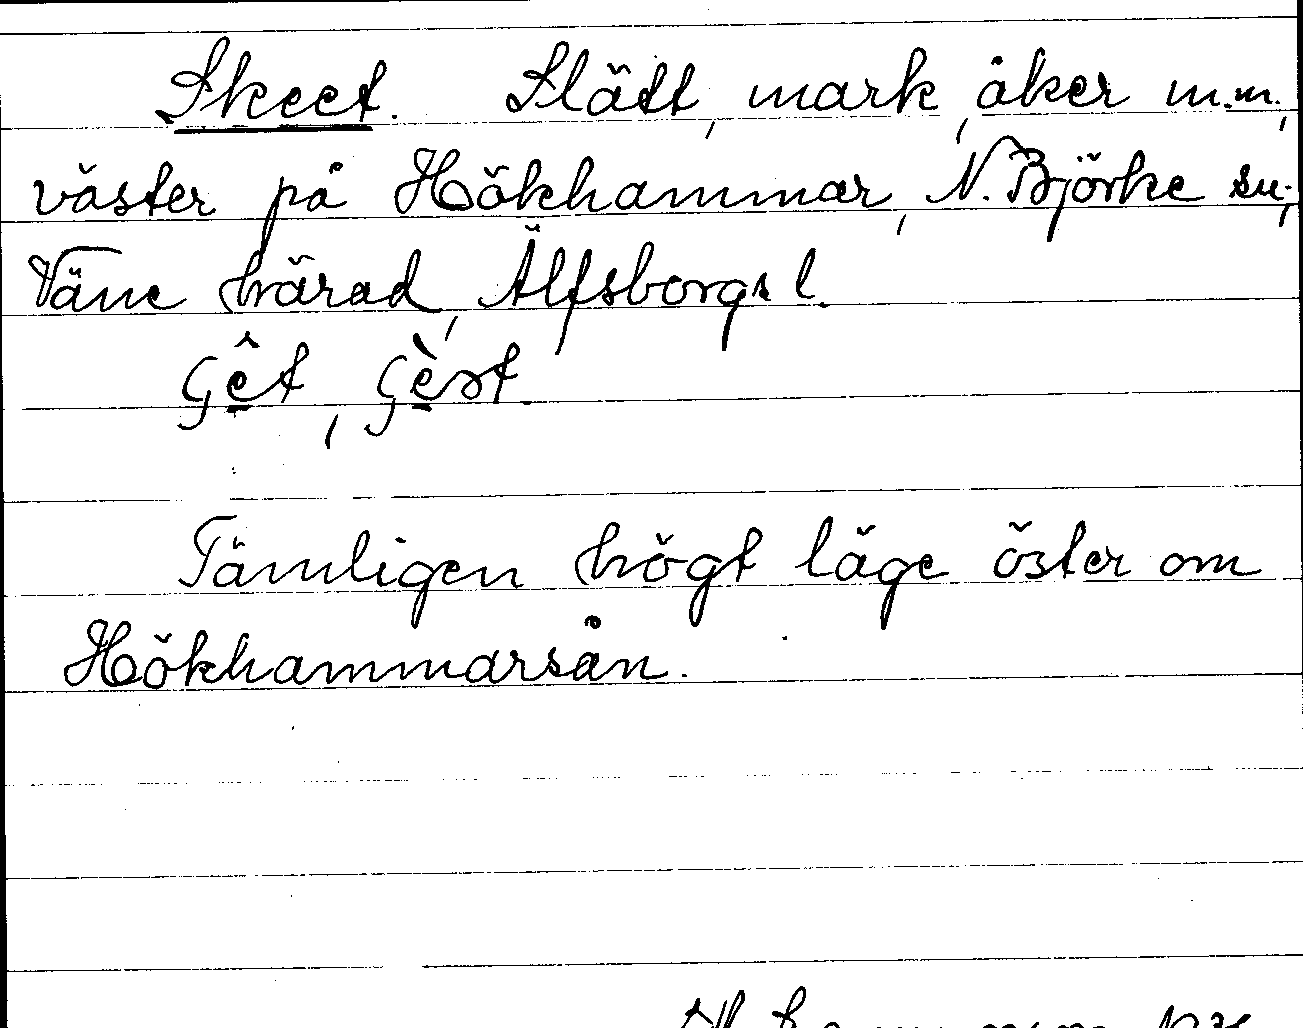 Skeet. Slätt, mark, åker m.m.,
väster på Hökhammar, N. Björke sn,
Väne härad, Älfsborgs l.
Tämligen högt läge öster om
Hökhammarsån.